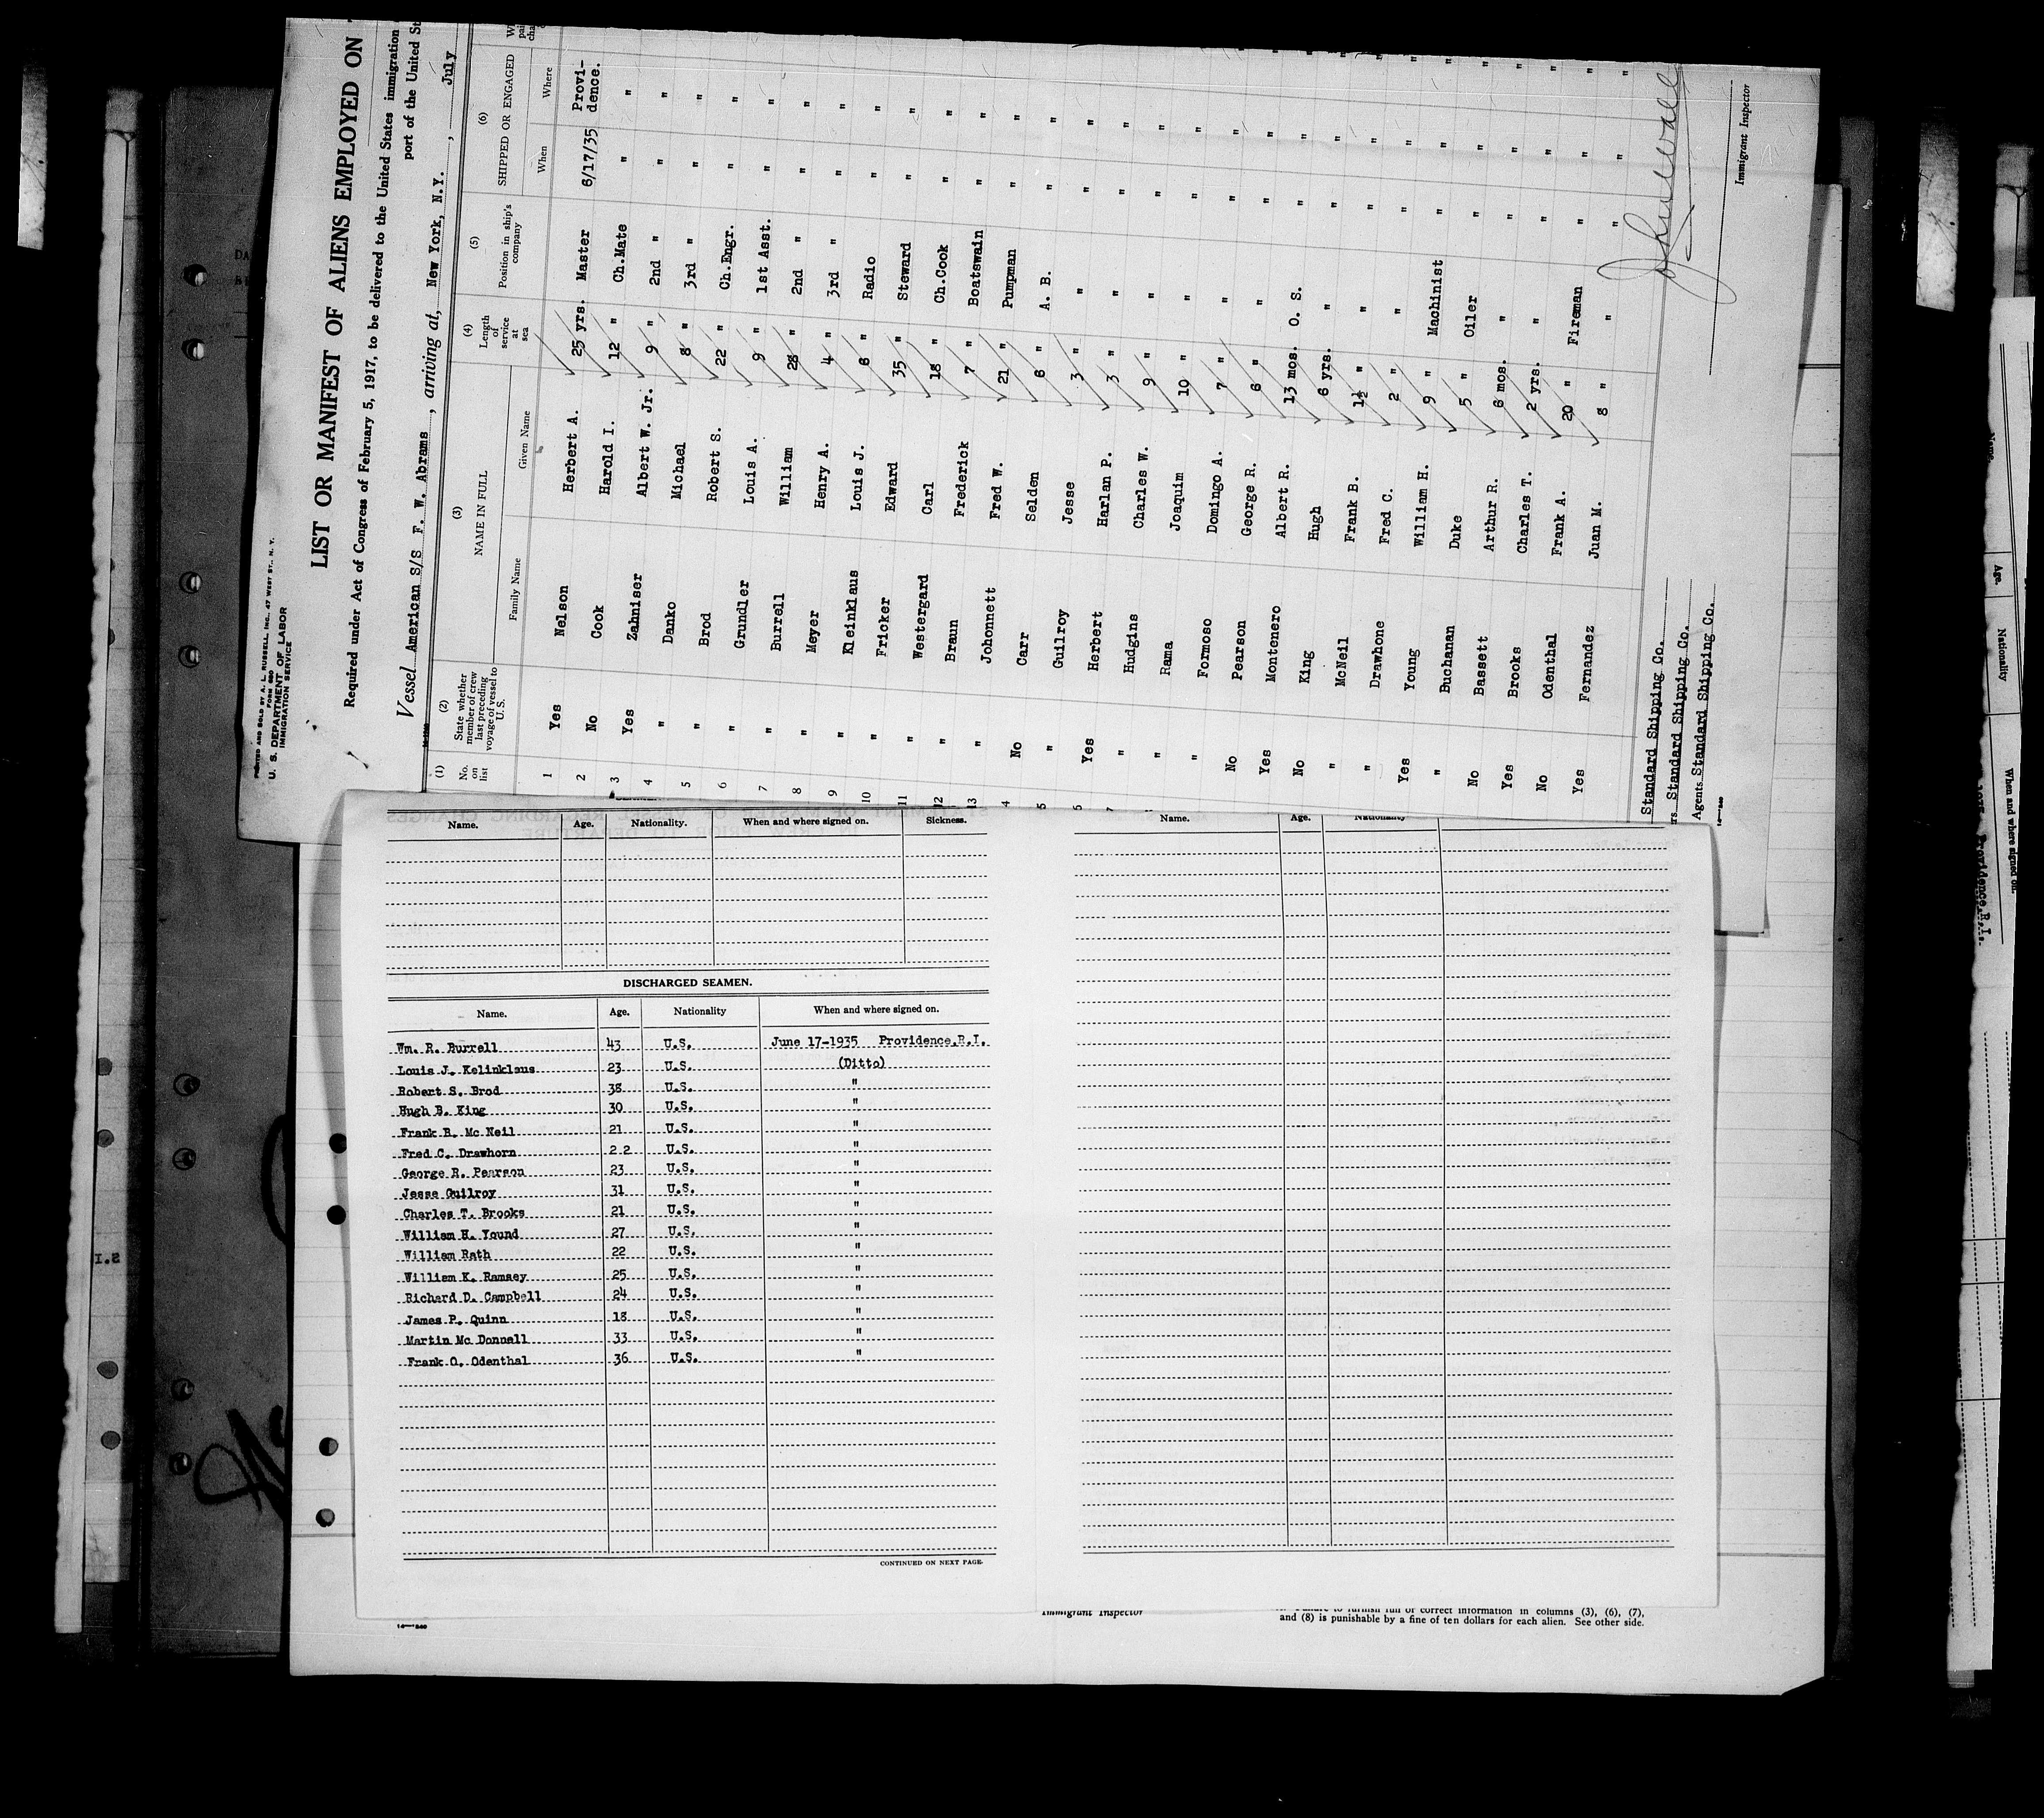 PRINTED AND SOLD BY A. L. RUSSELL, INC., 47 WEST ST., N. Y.
FORM 680
U. S. DEPARTMENT OF LABOR
IMMIGRATION SERVICE
LIST OR MANIFEST OF ALIENS EMPLOYED ON
Required under Act of Congress of February 5, 1917, to be delivered to the United States immigration
port of the United St
Vessel American S/S F. W. Abrams, arriving at, New York, N.Y., July
(1) (2) (3) (4) (5) (6)
No. on list
State whether member of crew last preceding voyage of vessel to U.S.
NAME IN FULL
Family Name Given Name
Length of service at sea
Position in ship's company
SHIPPED OR ENGAGED
When Where
1 Yes Nelson Herbert A. 25 yrs. Master 6/17/35 Provi-dence.
2 No Cook Harold I. 12 " Ch.Mate " "
3 Yes Zahniser Albert W. Jr. 9 " 2nd " " "
4 " Danko Michael 8 " 3rd " " "
5 " Brod Robert S. 22 " Ch.Engr. " "
6 " Grundler Louis A. 9 " 1st Asst. " "
7 " Burrell William 28 " 2nd " " "
8 " Meyer Henry A. 4 " 3rd " " "
9 " Kleinklaus Louis J. 6 " Radio " "
10 " Fricker Edward 35 " Steward " "
11 " Westergard Carl 18 " Ch.Cook " "
12 " Braun Frederick 7 " Boatswain " "
13 " Johonnett Fred W. 21 " Pumpman " "
4 No Carr Selden 6 " A. B. " "
5 " Guilroy Jesse 3 " " " "
6 Yes Herbert Harlan P. 3 " " " "
7 " Hudgins Charles W. 9 " " " "
" Rama Joaquim 10 " " " "
" Formoso Domingo A. 7 " " " "
No Pearson George R. 6 " " " "
Yes Montenero Albert R. 13 mos. O. S. " "
No King Hugh 6 yrs. " " "
" McNeil Frank B. 1½ " " " "
" Drawhone Fred C. 2 " " " "
Yes Young William H. 9 " Machinist " "
" Buchanan Duke 5 " Oiler " "
No Bassett Arthur R. 6 mos. " " "
Yes Brooks Charles T. 2 yrs. " " "
No Odenthal Frank A. 20 " Fireman " "
Yes Fernandez Juan M. 8 " " " "
Standard Shipping Co.
rs. Standard Shipping Co.
Agents Standard Shipping Co.
Immigrant Inspector
Name. Age. Nationality. When and where signed on. Sickness.
DISCHARGED SEAMEN.
Name. Age. Nationality When and where signed on.
Wm. R. Burrell 43 U.S. June 17-1935 Providence,R.I.
Louis J. Kelinklaus 23 U.S. (Ditto)
Robert S. Brod 38 U.S. "
Hugh B. King 30 U.S. "
Frank B. Mc Neil 21 U.S. "
Fred C. Drawhorn 2 2 U.S. "
George R. Pearson 23 U.S. "
Jesse Guilroy 31 U.S. "
Charles T. Brooks 21 U.S. "
William H. Yound 27 U.S. "
William Rath 22 U.S. "
William K. Ramsey 25 U.S. "
Richard D. Campbell 24 U.S. "
James P. Quinn 18 U.S. "
Martin Mc Donnall 33 U.S. "
Frank O. Odenthal 36 U.S. "
CONTINUED ON NEXT PAGE.
Name. Age. Nationality
Immigrant Inspector
furnish full or correct information in columns (3), (6), (7),
and (8) is punishable by a fine of ten dollars for each alien. See other side.
Name. Age. Nationality When and where signed on.
Providence,R.I.